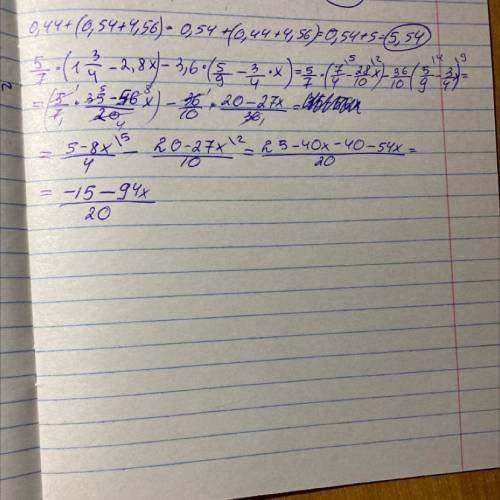 0,44+(0,54+4,56)= 0,54+(0,44+4,56)=0,54+5=5,54
5/7 · (1 3/4 - 2,8x) - 3,6 · (5/9 - 3/4 · x) = 5/7 · (7/4 \5 - 28/10 x \2) - 36/10 (5/9 \4 - 3/4 \9) =
= (5/7 · 35-56x/20) - 36/10 · 20-27x/36 =
= 5-8x/4 \5 - 20-27x/10 \2 = 25-40x-40-54x/20 =
= -15-94x/20